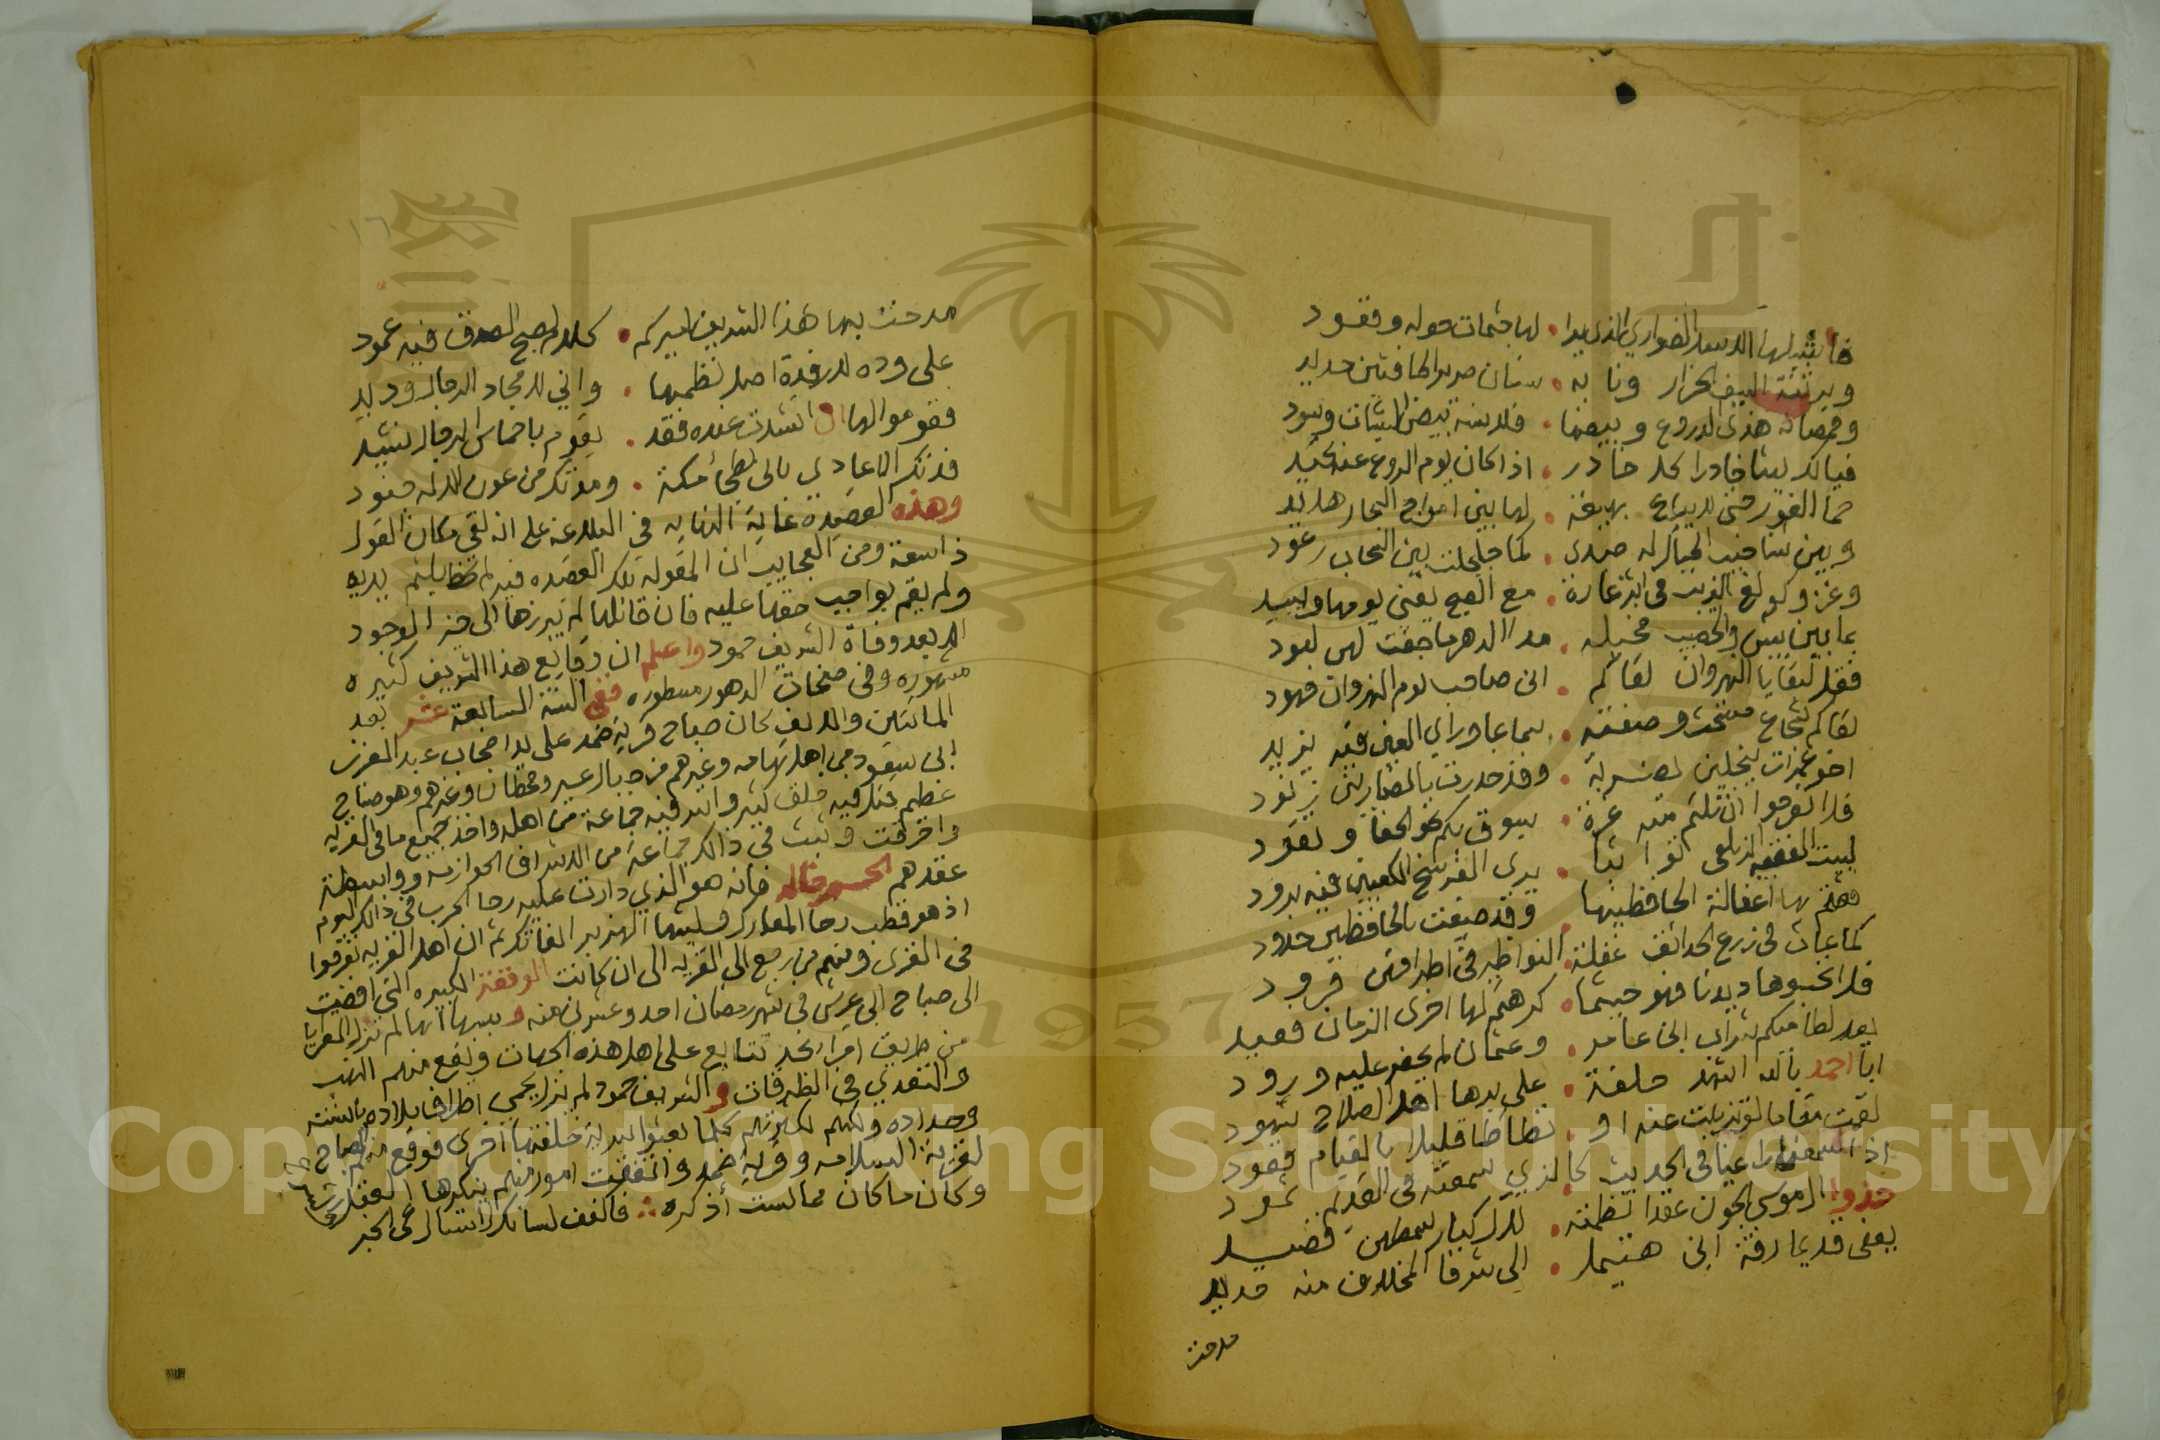 فما شبلها الاسد الضواري اذا بدا . لها جثمات حوله وفقود
وبرثنه السيف الجزار ونابه . سنان حديد الحافتين حديد
وقمصانه هذي الدروع وبيضها . قلانسه بيض
فيالك ليثا خادرا كل خادر . اذا كان يوم الروع عنه يحيد
حما الغور حتى لا يراع بهيعة . لها بين امواج البحار هديد
وبين شناخيب الجبال له صدى . كما جلجلت بين السحاب رعود
وغزو كولغ الذيب في اثر غارة . مع الصبح يفنى يومها ويبيد
بما بين بيش والخضيب مخيله . مدا الدهر ما جفت لهن لبود
فقل لبقايا النهروان لقاكم . اخى صاحب يوم النهروان فهود
لقاكم شجاع وصفته . بما عاوراى العين فيه يزيد
اخو غمزات ينجلين لضربة . وقد حدرت بالضاربين زنود
فلا تفرحوا ان نلتم منه غرة . يسوق بكم نحو الحفا ويقود
لبيت الفقيه الزيلعي . يرى الفرسخ الكعبين فيه برود
فعثتم بها اغفالة الحافظيها . وقد ضيعت بالحافظين حدود
كما عاث في زرع الحدائق غفلة . النواظير في اطرافهن قرود
فلا تحسبوها ديدنا فهو حيثما . كرهتم لها اخرى الزمان فعيد
بعد لطامنكم تراب ابى عامر . وعثمان لم يحضر عليه ورود
ابا احمد بالله اشهد حلفة . على برها اهل الصلاح شهود
لقمت مقاما لو تزيلت عنه او . تطأطا قليلا بالقيام قعود
اذا لسمعنا راعيا في الحديث . كالذي سمعنه في القديم ثمود
خذوا ال موسى الجون عقدا نظمته . للال كبار سمطهن قصيد
يغنى قديما رقة ابن هتيمل . الى شرفا المخلاف منه جديد
مدحت
مدحت بها هذا الشريف اميركم . كلام لصبح الصدق فيه عمود
على وده لا رفدة اصل نظمها . واني لامجاد الرجال ودود
فقوموا لها ان انشدت عنده فقد . يقوم باحماس الرجال نشيد
فذكر الاعادي يالى بطحا مكة . ومذكر من عون الاله جنود
وهذه القصيدة غاية النهاية في البلاغة على انه لقي مكان القول
ذا سعة ومن العجايب ان المقولة تلك القصيده فيه لم تضايلتم يديه
ولم يقم بواجب حقها عليه فان قائلها لم يبرزها الى حيز الوجود
الا بعد وفاة الشريف حمود واعلم ان وقايع هذا الشريف كثيره
مشهوره وفي صفحات الدهور مسطوره ففي السنة السابعة عشر بعد
المائتين والالف كان صباح قرية ضمد على يد اصحاب عبد العزيز
ابن سعود من اهل تهامه وغيرهم من جبال عسير وقحطان وغيرهم وهو صباح
عظيم قتل فيه خلق كثير واسر فيه جماعة من اهله واخذ جميع ما في القرية
واحرقت وثبت في ذالك جماعة من الاشراف الحوازمه وواسطة
عقدهم الحسن بن خالد فانه هو الذي دارت عليه رحا الحرب في ذالك اليوم
اذ هو قطب رحا المعارك وليثها الهزبر الفاتك ثم ان اهل القرية تفرقوا
في القرى ومنهم من رجع الى القرية الى ان كانت الوقعة الكبيره التي افضت
الى صباح ابي عريش في شهر رمضان احد وعشرين منه وسببها انها لم تزل السرايا
من طريق امرا نجد تتابع على اهل هذه الجهات ويقع منهم النهب
والتعدي في الطرقات والشريف حمود لم يزل يحمي اطراف بلاده بالسنة
وحداده ولكنهم لكثرتهم كلما بعثوا سرية خلفتها اخرى فوقع منهم صباح
لقرية السلامه وقرية ضمد واتفقت امور منهم ينكرها العقل
وكان ما كان مما لست أذكره فاكفف لسانك لا تسال عن الخبر